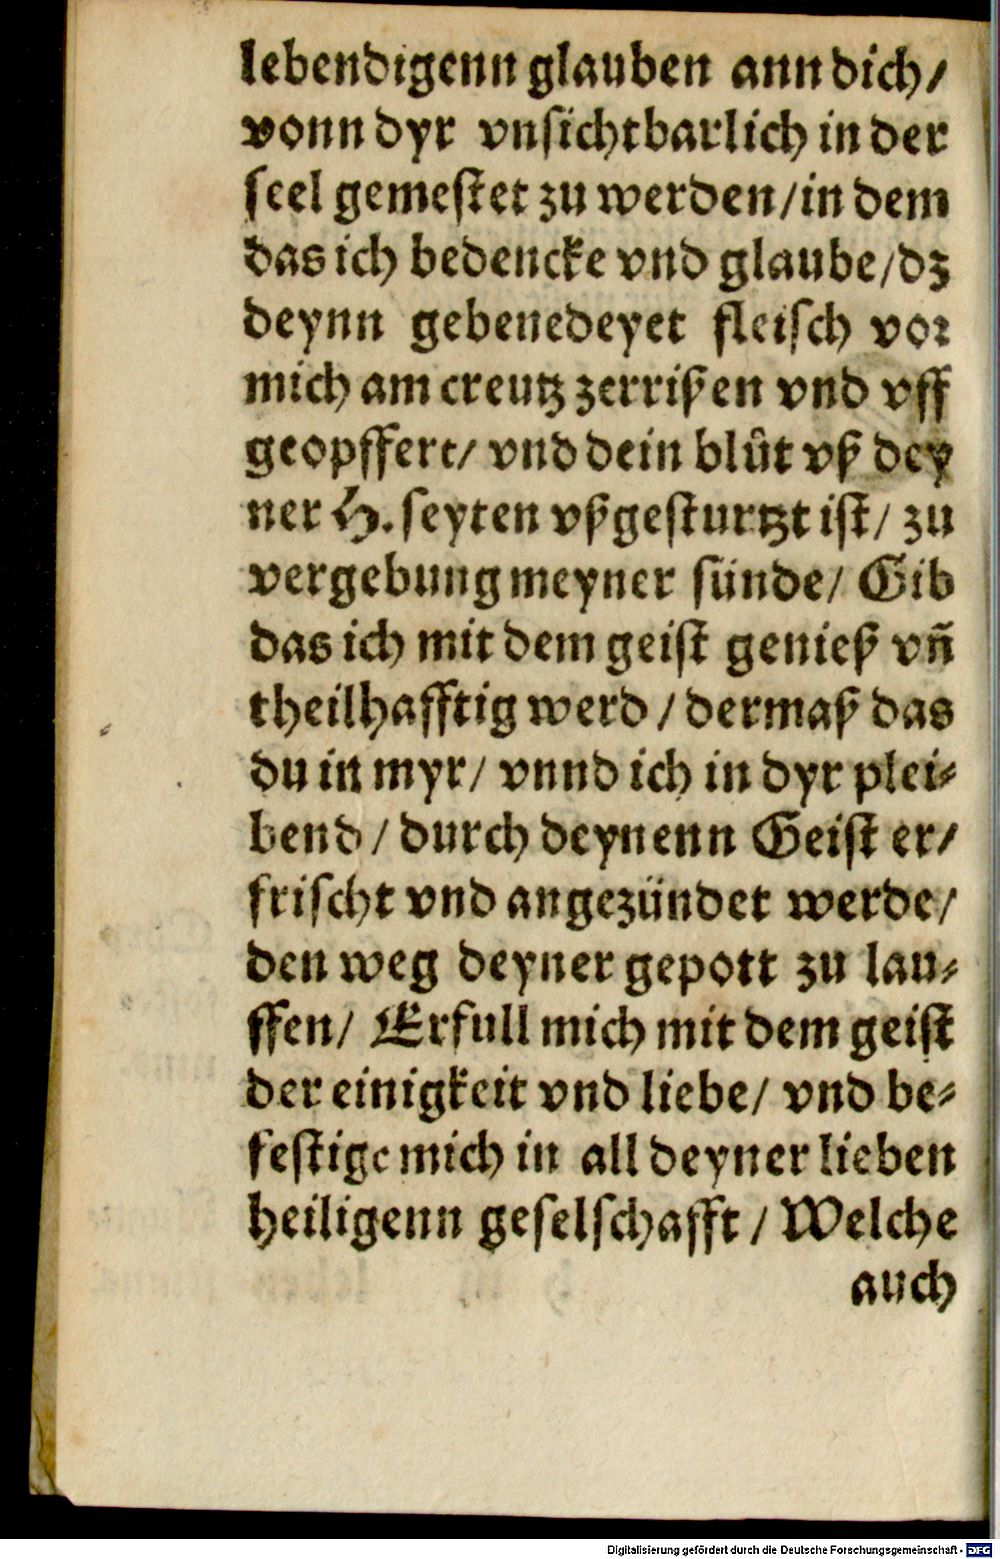 lebendigenn glauben ann dich/
vonn dyr vnſichtbarlich in der
ſeel gemeſtet zu werden/in dem
das ich bedencke vnd glaube/dz
deynn gebenedeyet fleiſch vor
mich am creutz zerrißen vnd vff
geopffert/ vnd dein blůt vß dey
ner H. ſeyten vßgeſturtzt iſt/ zu
vergebung meyner ſünde/ Gib
das ich mit dem geiſt genieß vñ
theilhafftig werd / dermaß das
du in myr/ vnnd ich in dyr plei⸗
bend / durch deynenn Geiſt er/
friſcht vnd angezündet werde/
den weg deyner gepott zu lau⸗
ffen/ Erfull mich mit dem geiſt
der einigkeit vnd liebe/ vnd be⸗
feſtige mich in all deyner lieben
heiligenn geſelſchafft / Welche
auch
Digitalisierung gefördert durch die Deutsche Forschungsgemeinschaft - DFG